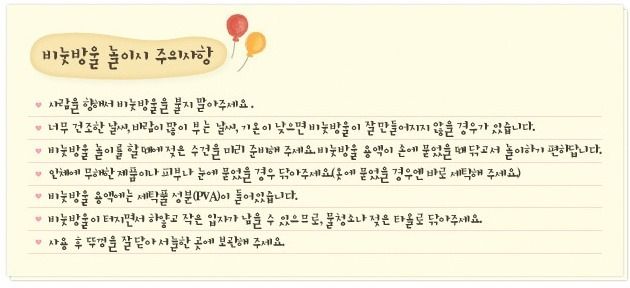 비눗방울 놀이시 주의사항
사람을 향해서 비눗방울을 불지 말아주세요.
너무 건조한 날씨, 바람이 많이 부는 날씨, 기온이 낮으면 비눗방울이 잘 만들어지지 않을 경우가 있습니다.
비눗방울 놀이를 할 때에 젖은 수건을 미리 준비해 주세요. 비눗방울 용액이 손에 묻었을 때 닦고서 놀이하기 편하답니다.
인체에 무해한 제품이나 피부나 눈에 묻었을 경우 닦아주세요(옷에 묻었을 경우엔 바로 세탁해 주세요)
비눗방울 용액에는 세탁풀 성분(PVA)이 들어있습니다.
비눗방울이 터지면서 하얗고 작은 입자가 남을 수 있으므로, 물청소나 젖은 타올로 닦아주세요.
사용 후 뚜껑을 잘 닫아 서늘한 곳에 보관해 주세요.